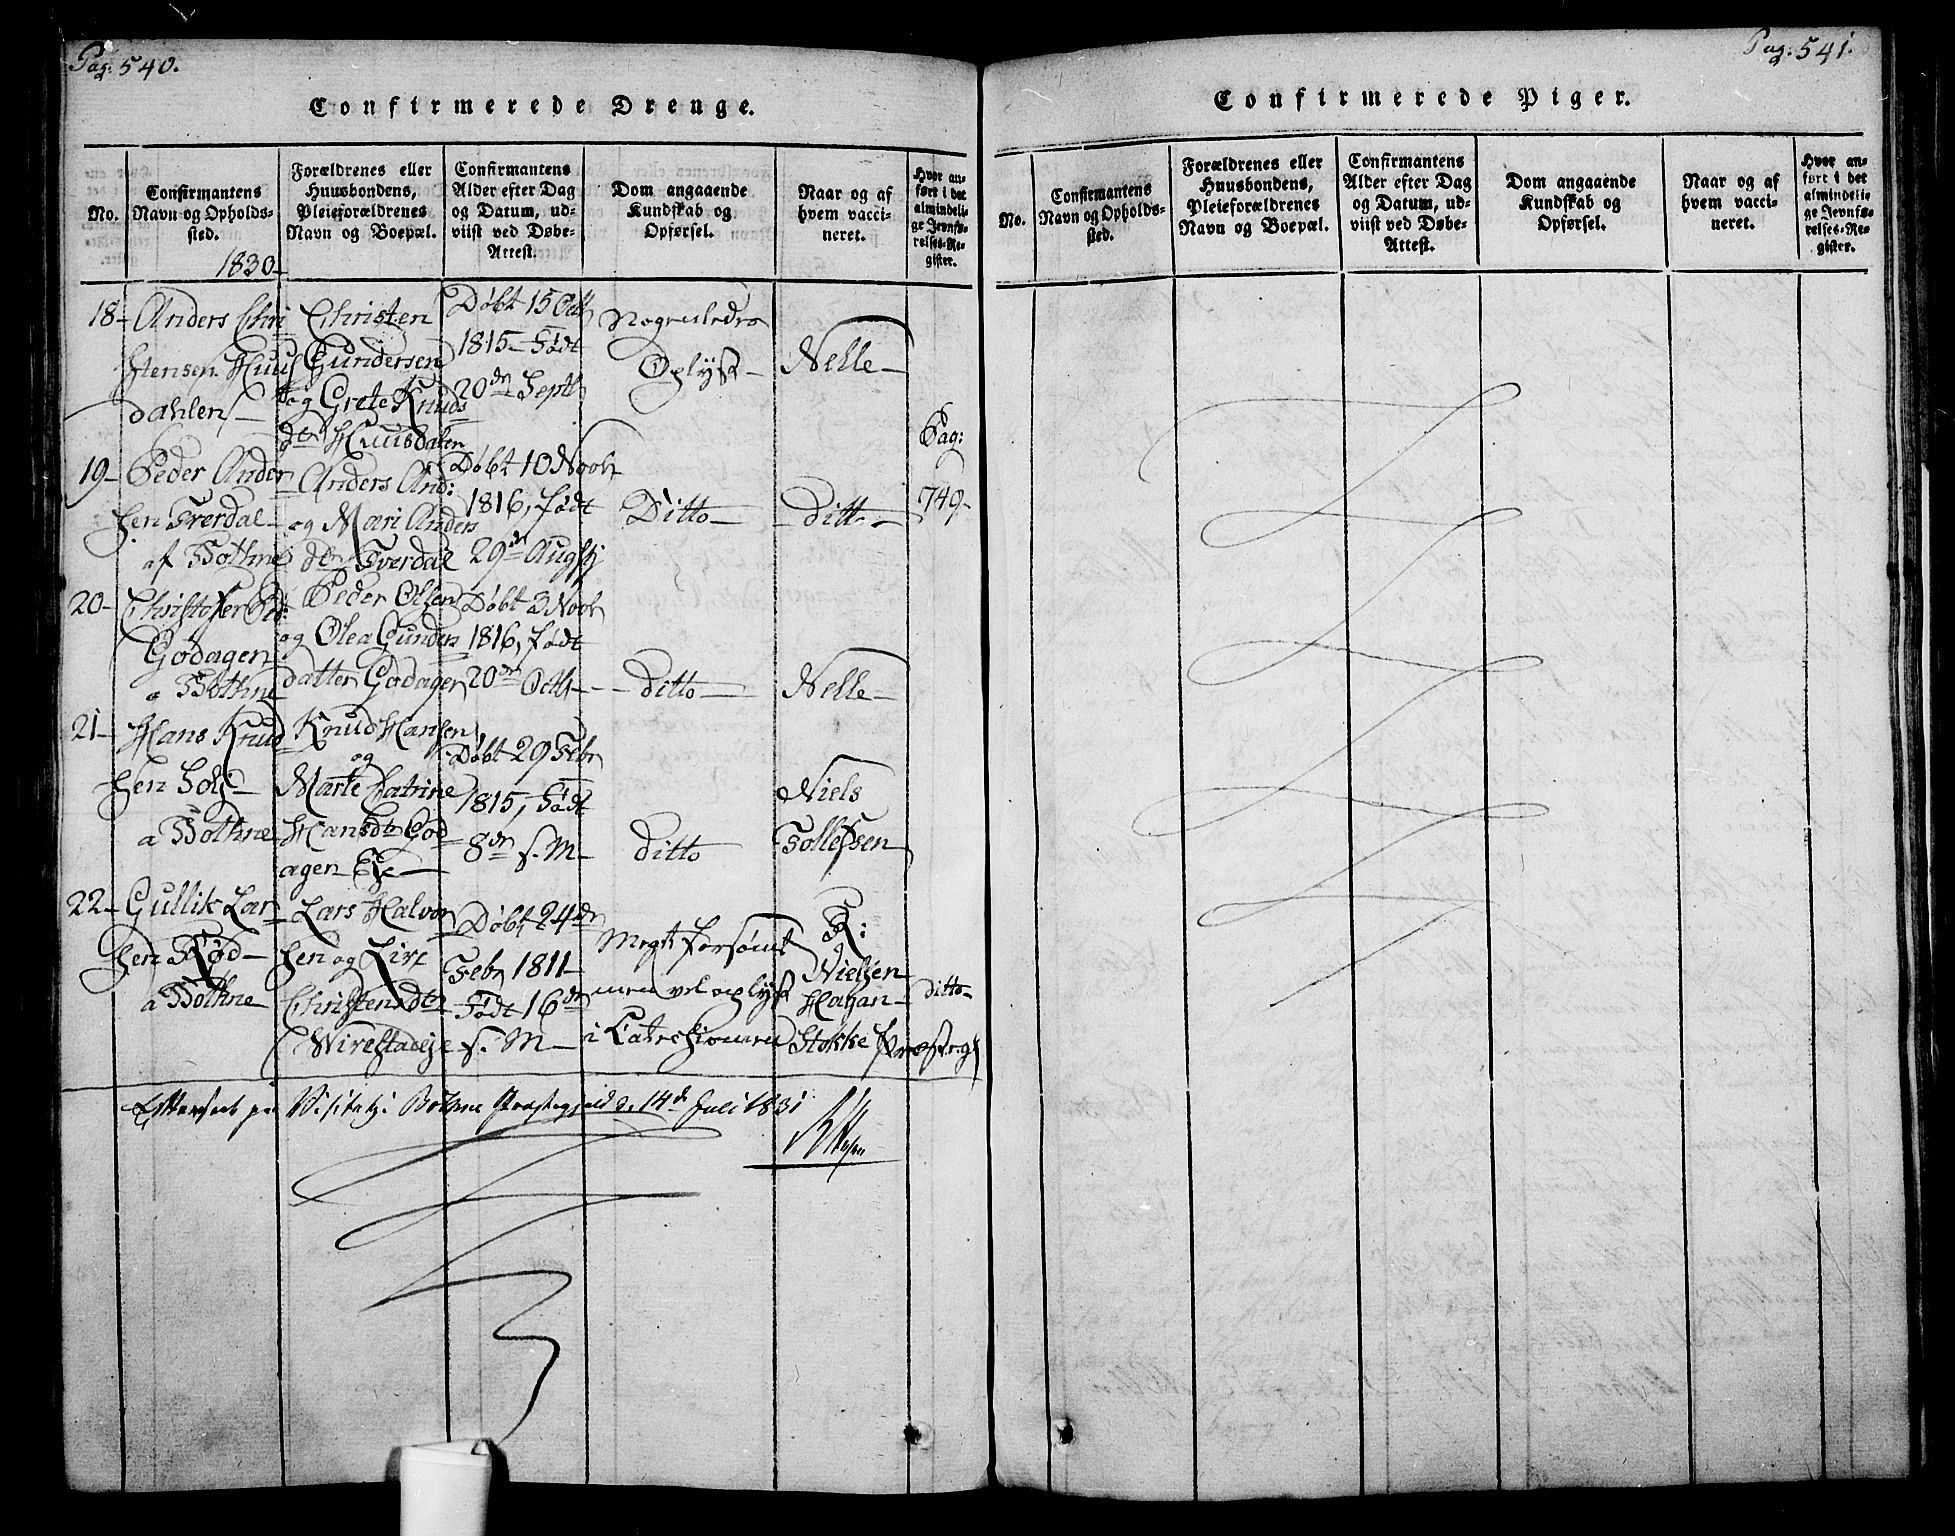 Pag: 540.
Confirmerede Drenge.
No.
Confirmantens
Navn og Opholds-
sted.
1830
Forældrenes eller
Huusbondens,
Pleieforældrenes
Navn og Boepæl.
Confirmantens
Alder efter Dag
og Datum, ud-
viist ved Døbe-
Attest.
Dom angaaende
Kundskab og
Opførsel.
Naar og af
hvem vacci-
neret.
Hvor an-
ført i det
almindeli-
ge Jevnfø-
relses-Re-
gister.
18- Anders Chri
stensen Huus
dahlen
Christen
Gundersen
og Grete Knuds
dtr Huusdalen
Døbt 15 Octb
1815- Født
20de Septb
Nogenledes
Oplyst
Nelle
19- Peder Ander
sen Tverdal
af Bothne
Anders And:
og Mari Anders
dtr Tverdal
Døbt 10 Novbr
1816, født
29de Augstj
Ditto
ditto
Pag:
749-
20- Christofer Ped:
Godagen
a Bothne
Peder Olsen
og Olea Gunders
datter Godagen
Døbt 3 Novbr
1816, født
20de Octb
ditto
Nelle
21- Hans Knud
sen
a Bothne
Knud Hansen
og
Marte Catrine
Hansdtr God
agen Eje
Døbt 29 Febr
1815, Født
8de s. M
ditto
Niels
Tollefsen
22- Gullik Lar
sen Rød
a Bothne
Lars Halvor
sen og
Christensdtr
Wirestadeje
Døbt 24de
Febr 1811
Født 16de
s. M
Meget forsømt
men vel oplyst
i
R:
Nielsen
Hagan
Stokke Præstegj
ditto
Efterseet paa Visitatz i Bothne Præstegjeld d. 14de Juli 1831
Pag: 541.
Confirmerede Piger.
No.
Confirmantens
Navn og Opholds-
sted.
Forældrenes eller
Huusbondens,
Pleieforældrenes
Navn og Boepæl.
Confirmantens
Alder efter Dag
og Datum, ud-
viist ved Døbe-
Attest.
Dom angaaende
Kundskab og
Opførsel.
Naar og af
hvem vacci-
neret.
Hvor an-
ført i det
almindeli-
ge Jevnfø-
relses-Re-
gister.